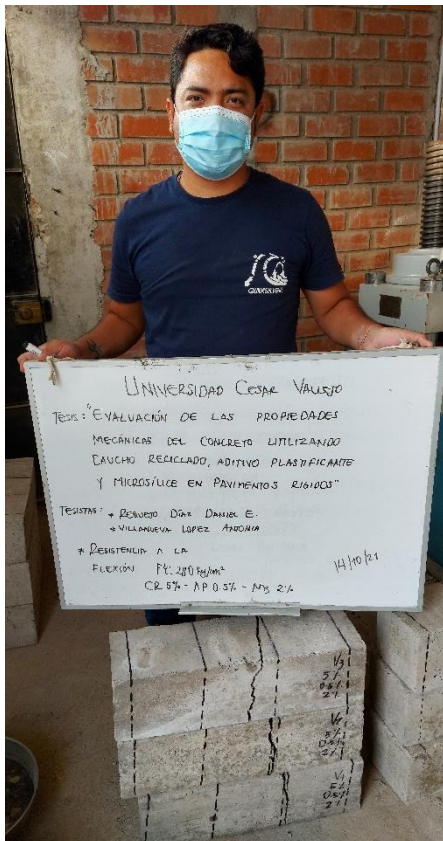 QUIKSILVER
UNIVERSIDAD CESAR VALLEJO
TESIS: "EVALUACIÓN DE LAS PROPIEDADES
MECÁNICAS DEL CONCRETO UTILIZANDO
CAUCHO RECICLADO, ADITIVO PLASTIFICANTE
Y MICROSÍLICE EN PAVIMENTOS RIGIDOS"
TESISTAS: * RESVETO DÍAZ DANIEL E.
* VILLANUEVA LOPEZ ANTONIA
* RESISTENCIA A LA
FLEXIÓN F'c: 280 Kg/cm²
14/10/21
CR 5% - AP 0.5% - MS 2%
V3
5%
0.5%
2%
5%
0.5%
2%
V1
5%
0.5%
2%